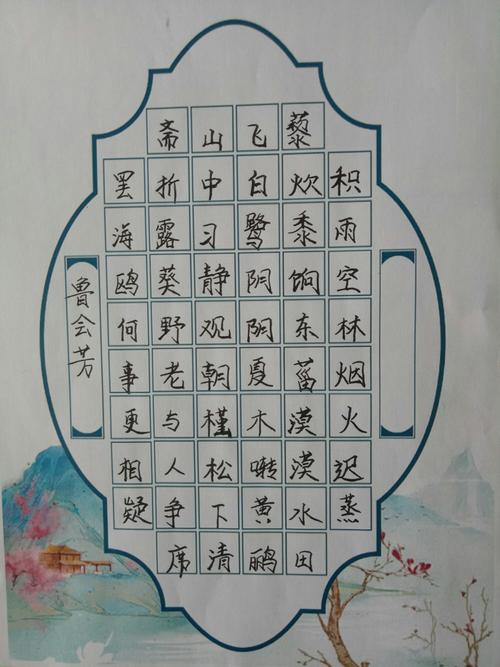 积雨空林烟火迟蒸
藜炊黍饷东菑漠漠水田
飞白鹭阴阴夏木啭黄鹂
山中习静观朝槿松下清
斋折露葵野老与人争席
罢海鸥何事更相疑
鲁会芳